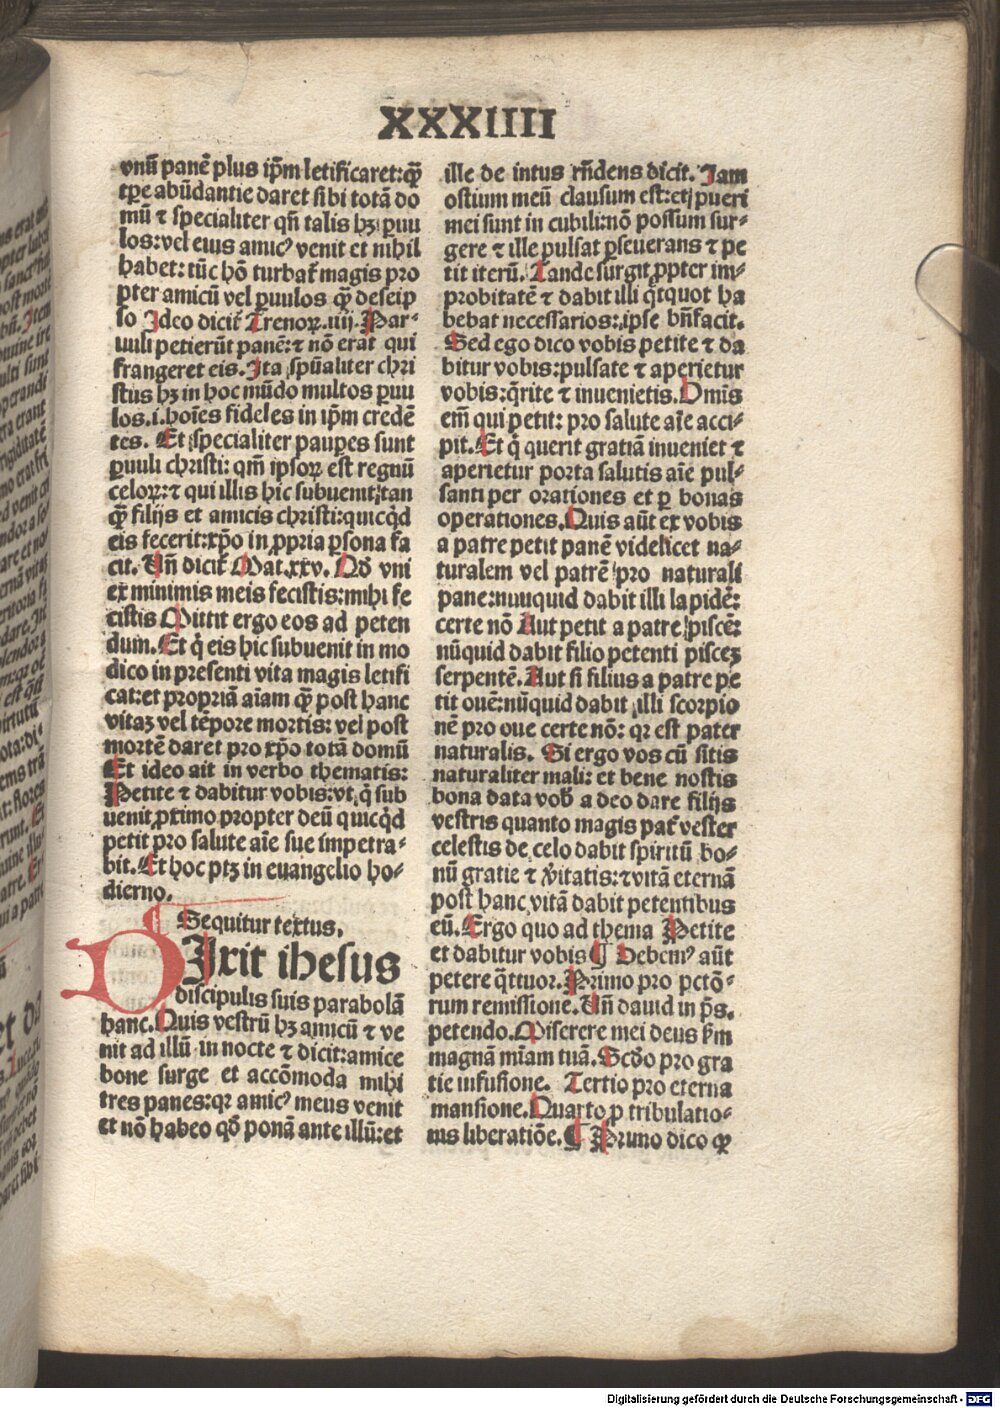 XXXIIII
vnū panē plus ip̄m letificaret: q̄
tꝑe abūdantie daret sibi totā do
mū ⁊ specialiter qn̄ talis hꝫ ꝑuu
los: vel eius amicꝰ venit et nihil
habet: tūc hō turbat̄ magis pro
pter amicū vel ꝑuulos q̄ de seip
so Ideo dicit̄ Trenoꝝ .iiij. Par-
uuli petierūt panē: ⁊ nō erat qui
frangeret eis. Ita spūaliter chri
stus hꝫ in hoc mūdo multos ꝑuu
los .i. hoīes fideles in ip̄m credē
tes. Et specialiter pauꝑes sunt
ꝑuuli christi: qm̄ ipsoꝝ est regnū
celoꝝ: ⁊ qui illis hic subuenit, tan
q̄ filijs et amicis christi: quicq̄d
eis fecerit: xp̄o in ꝓpria ꝑsona fa
cit. Vn̄ dicit̄ Mat. xxv. Qd̄ vni
ex minimis meis fecistis: mihi fe
cistis Mittit ergo eos ad peten
dum. Et q̄ eis hic subuenit in mo
dico in presenti vita magis letifi
cat: et propriā aīam q̄ post hanc
vitaꝫ vel tēpore mortis: vel post
mortē daret pro xp̄o totā domū
Et ideo ait in verbo thematis:
Petite ⁊ dabitur vobis: vt q̄ sub
uenit ꝓximo propter deū quicq̄d
petit pro salute aīe sue impetra-
bit. Et hoc ptꝫ in euangelio ho-
dierno.
Sequitur textus.
DIxit ihesus
discipulis suis parabolā
hanc. Quis vestrū hꝫ amicū ⁊ ve
nit ad illū in nocte ⁊ dicit: amice
bone surge et accōmoda mihi
tres panes: qꝛ amicꝰ meus venit
et nō habeo qd̄ ponā ante illū: et
ille de intus rn̄dens dicit. Iam
ostium meū clausum est: et pueri
mei sunt in cubili: nō possum sur-
gere ⁊ ille pulsat ꝑseuerans ⁊ pe
tit iterū. Tandē surgit ꝓpter im-
probitatē ⁊ dabit illi q̄tquot ha
bebat necessarios: ipse bn̄facit.
Sed ego dico vobis petite ⁊ da
bitur vobis: pulsate ⁊ aperietur
vobis: q̄rite ⁊ inuenietis. Omīs
em̄ qui petit: pro salute aīe acci-
pit. Et q̄ querit gratiā inueniet ⁊
aperietur porta salutis aīe pul-
santi per orationes et ꝑ bonas
operationes. Quis aūt ex vobis
a patre petit panē videlicet na-
turalem vel patrē pro naturali
pane: nunquid dabit illi lapidē:
certe nō Aut petit a patre piscē:
nūquid dabit filio petenti pisceꝫ
serpentē. Aut si filius a patre pe
tit ouē: nūquid dabit illi scorpio
nē pro oue certe nō: qꝛ est pater
naturalis. Si ergo vos cū sitis
naturaliter mali: et bene nostis
bona data vob̄ a deo dare filijs
vestris quanto magis pat̄ vester
celestis de celo dabit spiritū bo-
nū gratie ⁊ v̄itatis: ⁊ vitā eternā
post hanc vitā dabit petentibus
eū. Ergo quo ad thema Petite
et dabitur vobis ¶ Debemꝰ aūt
petere q̄ttuor. Primo pro pctō-
rum remissione. Vn̄ dauid in ps̄.
petendo. Miserere mei deus s̄m
magnā mīam tuā. Scd̄o pro gra
tie infusione. Tertio pro eterna
mansione. Quarto ꝑ tribulatio-
nis liberatiōe. ¶ Primo dico ꝙ
Digitalisierung gefördert durch die Deutsche Forschungsgemeinschaft - DFG